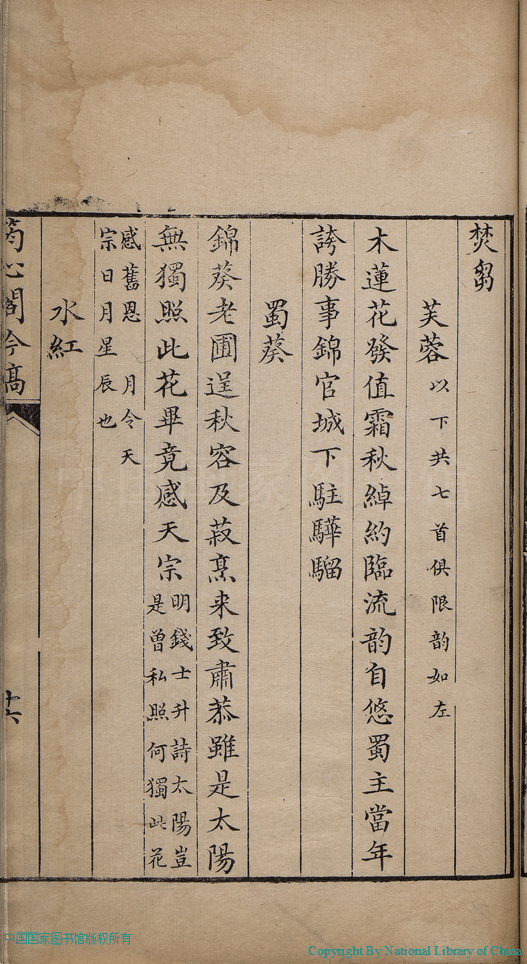 焚芻
芙蓉以下共七首俱限韵如左
木蓮花發值霜秋綽約臨流韵自悠蜀主當年
誇勝事錦官城下駐驊騮
蜀葵
錦葵老圃逞秋容及菽烹来致肅恭雖是太陽
無獨照此花畢竟感天宗明錢士升詩太陽豈
是曾私照何獨此花
感舊恩 月令天
宗日月星辰也
水紅
芍心閣吟髙
十六
中国国家图书馆版权所有
Copyright By National Library of China